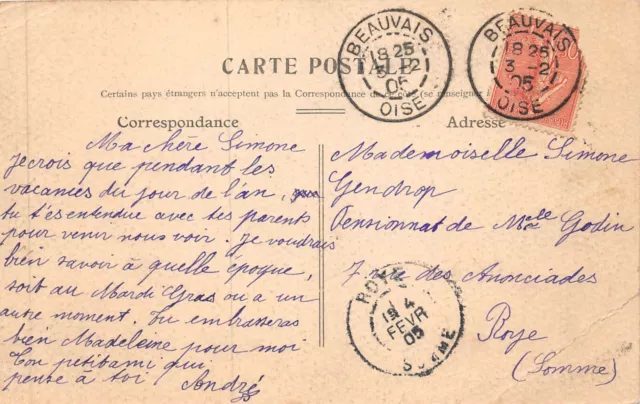 CARTE POSTALE
Certains pays étrangers n'acceptent pas la Correspondance (se renseigner
Correspondance
Adresse
BEAUVAIS
18 25
3 - 2
05
OISE
BEAUVAIS
18 25
3 - 2
05
OISE
Ma chère Simone
Je crois que pendant les
vacances du jour de l'an,
tu t'es entendue avec tes parents
pour venir nous voir. Je voudrais
bien savoir à quelle époque,
soit au Mardi Gras ou a un
autre moment. Tu embrasseras
bien Madeleine pour moi
Ton petit ami qui
pense à toi André
Mademoiselle Simone
Gendrop
Pensionnat de Melle Godin
7, rue des Anonciades
Roye
(Somme)
ROYE
4
FEVR
05
SOMME